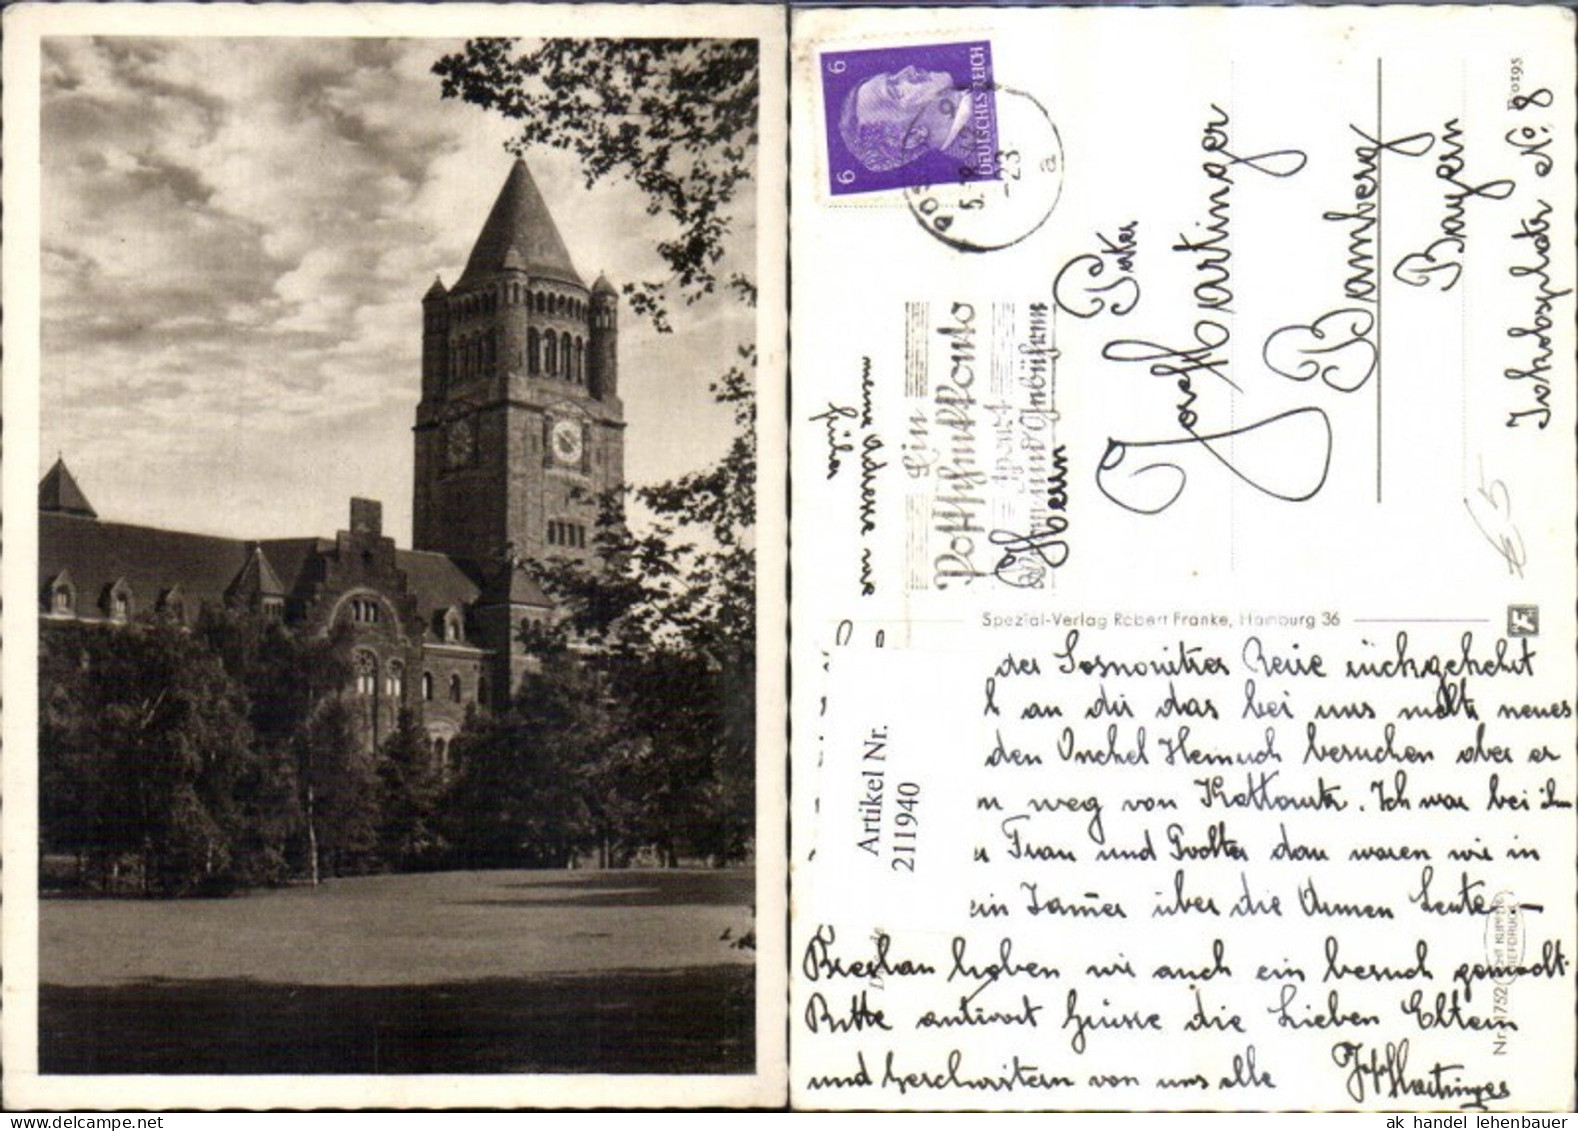 6
6
DEUTSCHES REICH
5.
-23
a
Ein
Postscheckkonto
spart
Herrn
Pater
Josef Hartinger
Bamberg
Bayern
Jakobsplatz No. 8
meine Adresse wie
früher
Spezial-Verlag Robert Franke, Hamburg 36
Artikel Nr.
211940
der Sosnowitzer Reise rückgekehrt
an dir das bei uns nichts neues
den Onckel Heinrich besuchen aber er
weg von Kattowitz. Ich war bei ihm
Frau und Tochter dau waren wir in
ein Jamer über die Armen Leute –
Breslau haben wir auch ein besuch gemacht.
Bitte antwort Grüsse die Lieben Eltern
und Geschwistern von uns alle
Josef Hartinger
Nr. 1752
€ 5
ak handel lehenbauer